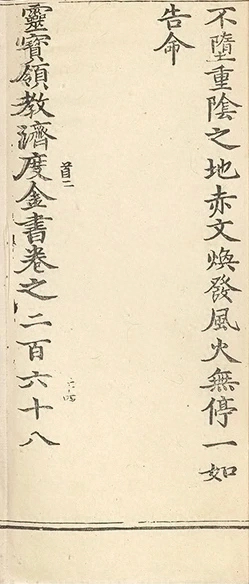 不墮重陰之地赤文煥發風火無停一如
告命
靈寶領教濟度金書卷之二百六十八
首二
六四